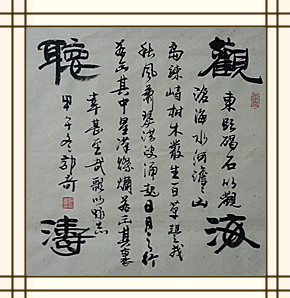 觀海
聽濤
東臨碣石以觀
滄海水何澹々山
島竦峙樹木叢生百草豐茂
秋風蕭瑟洪波湧起日月之行
若出其中星漢燦爛若出其裏
幸甚至哉歌以詠志
甲午冬